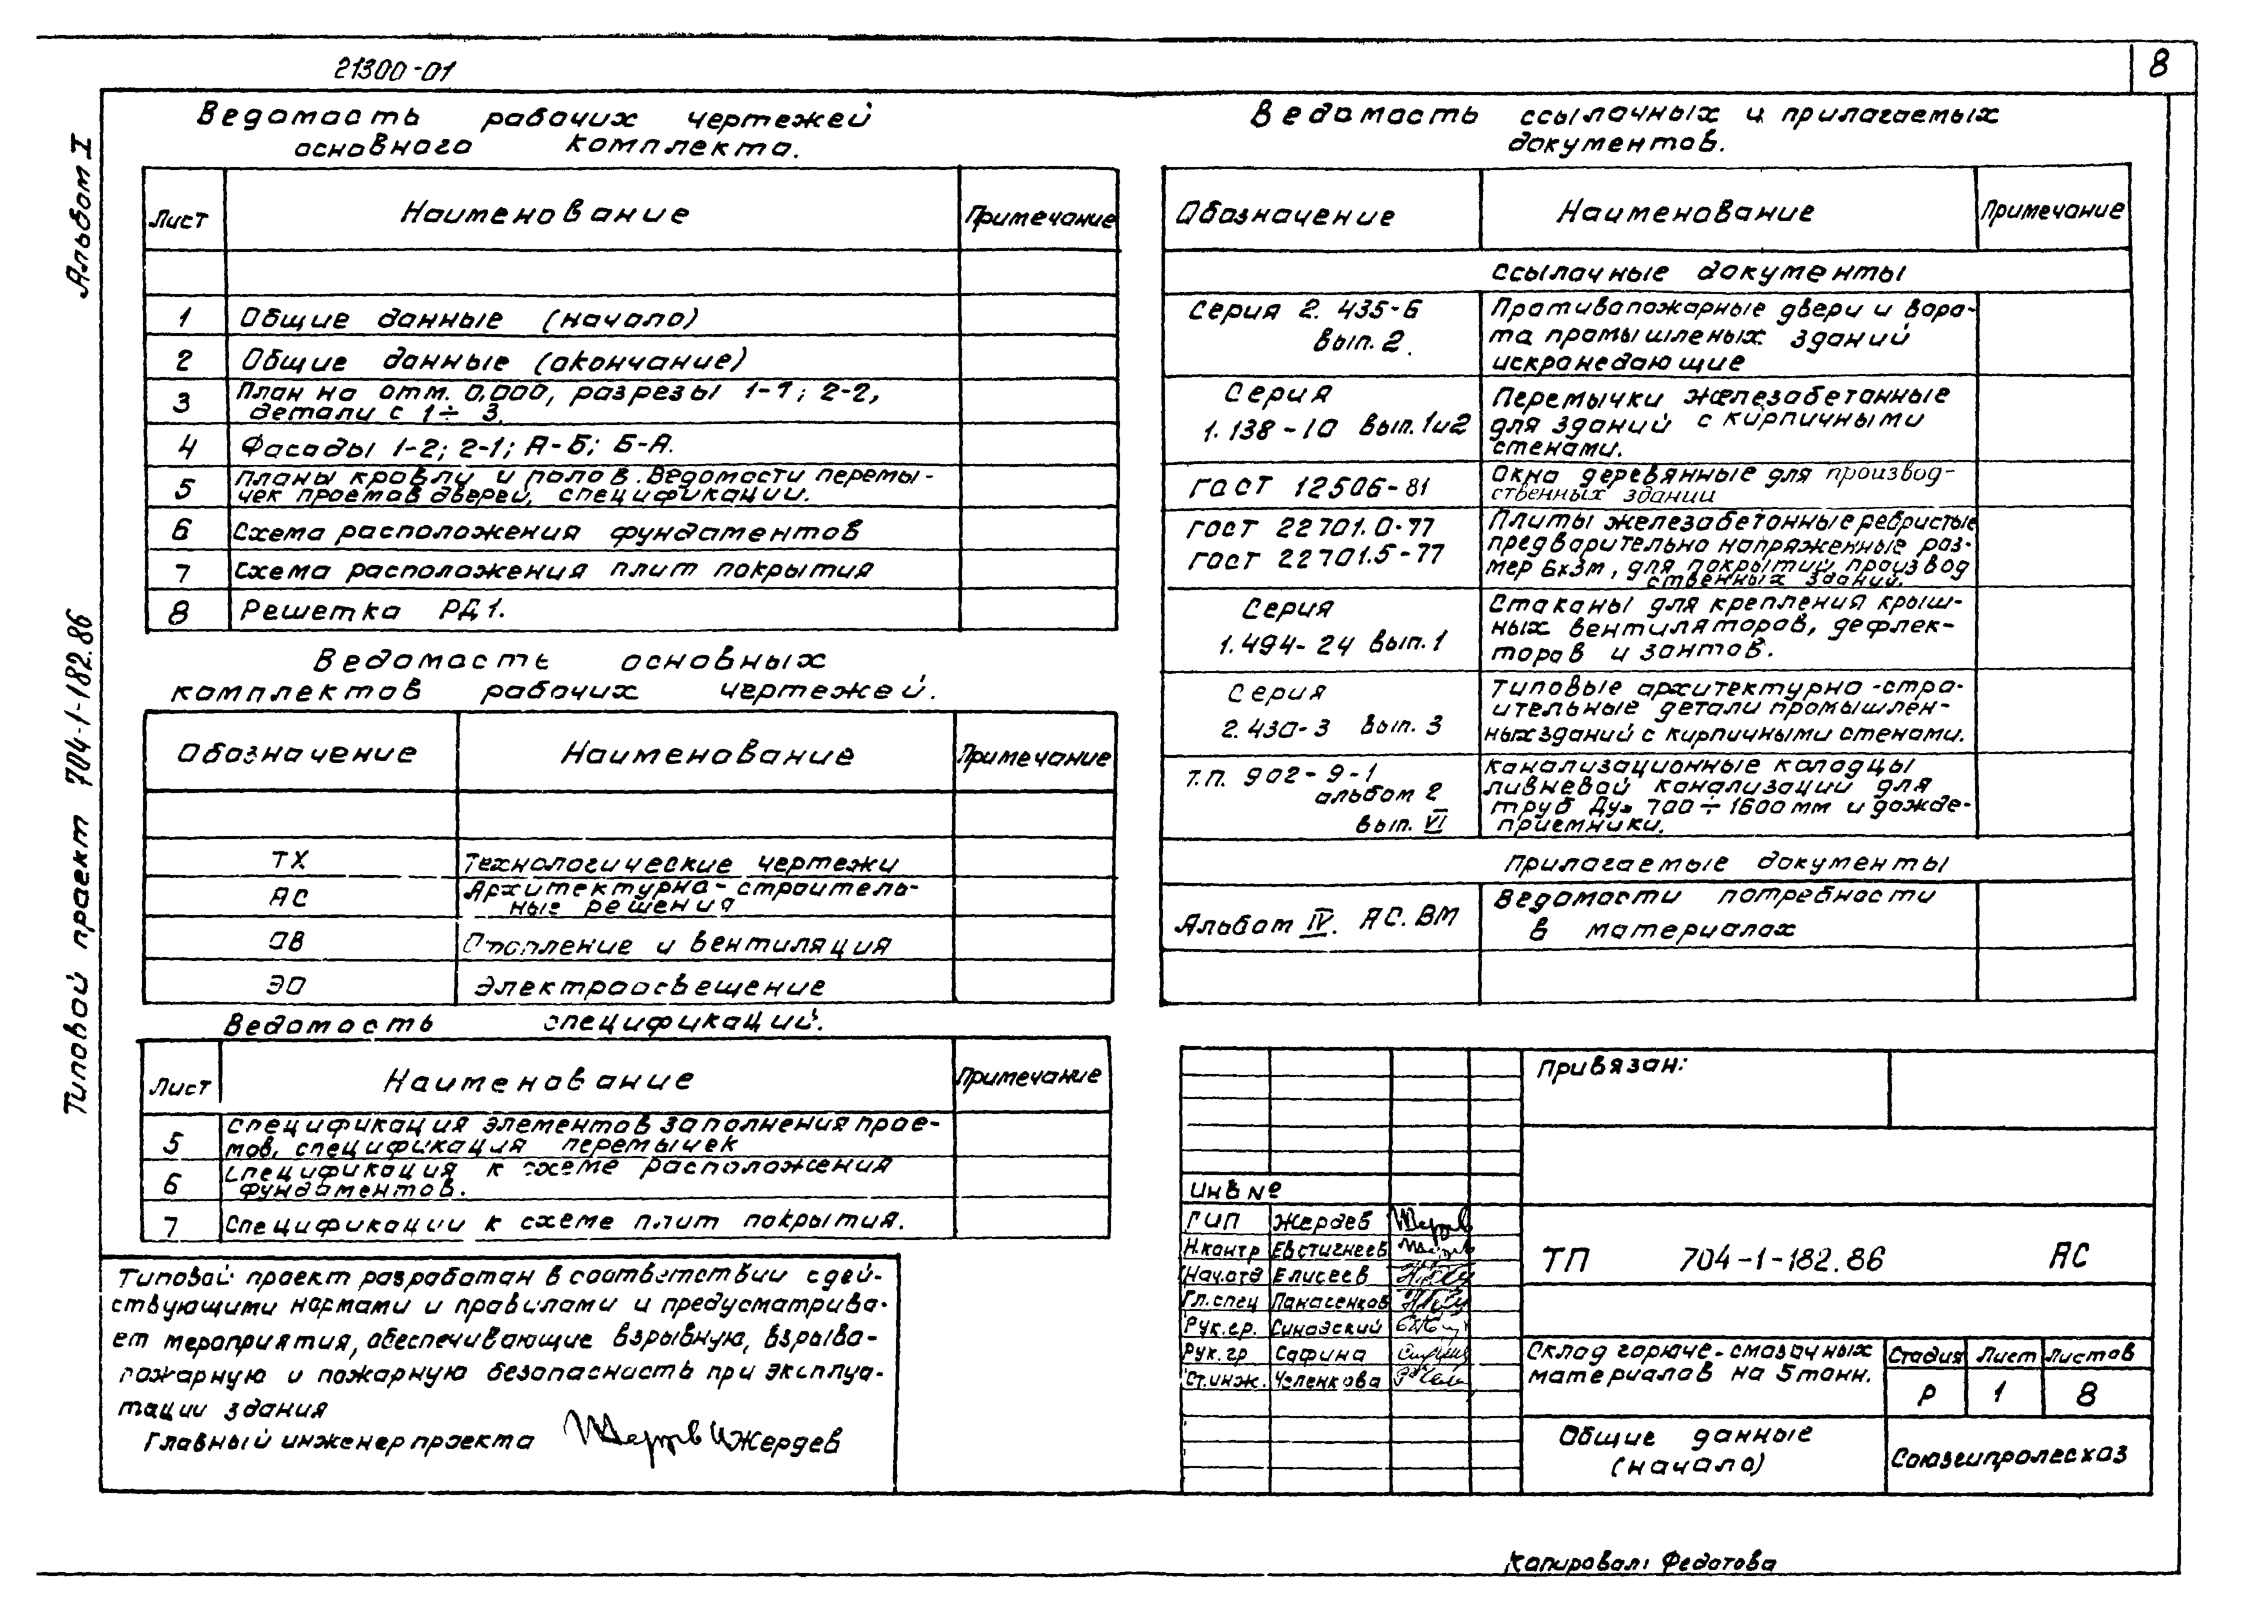 21300-01
8
Альбом I
Типовой проект 704-1-182.86
Ведомость рабочих чертежей
основного комплекта.
Лист Наименование Примечание
1 Общие данные (начало)
2 Общие данные (окончание)
3 План на отм. 0,000, разрезы 1-1; 2-2,
детали с 1÷3.
4 Фасады 1-2; 2-1; А-Б; Б-А.
5 Планы кровли и полов. Ведомости перемы-
чек проемов дверей, спецификации.
6 Схема расположения фундаментов
7 Схема расположения плит покрытия
8 Решетка РД1.
Ведомость основных
комплектов рабочих чертежей.
Обозначение Наименование Примечание
ТХ Технологические чертежи
АС Архитектурно-строитель-
ные решения
ОВ Отопление и вентиляция
ЭО Электроосвещение
Ведомость спецификаций.
Лист Наименование Примечание
5 Спецификация элементов заполнения прое-
мов, спецификация перемычек
6 Спецификация к схеме расположения
фундаментов.
7 Спецификации к схеме плит покрытия.
Типовой проект разработан в соответствии с дей-
ствующими нормами и правилами и предусматрива-
ет мероприятия, обеспечивающие взрывную, взрыво-
пожарную и пожарную безопасность при эксплуа-
тации здания
Главный инженер проекта Жердев
Ведомость ссылочных и прилагаемых
документов.
Обозначение Наименование Примечание
Ссылочные документы
Серия 2.435-6 Противопожарные двери и воро-
вып.2. та промышленых зданий
искронедающие
Серия Перемычки железобетонные
1.138-10 вып.1и2 для зданий с кирпичными
стенами.
ГОСТ 12506-81 Окна деревянные для производ-
ственных здании
ГОСТ 22701.0-77 Плиты железобетонные ребристые
ГОСТ 22701.5-77 предварительно напряженные раз-
мер 6х3м, для покрытий производ
ственных зданий.
Серия Стаканы для крепления крыш-
1.494-24 вып.1 ных вентиляторов, дефлек-
торов и зонтов.
Серия Типовые архитектурно-стро-
2.430-3 вып. 3 ительные детали промышлен-
ных зданий с кирпичными стенами.
Т.П. 902-9-1 Канализационные колодцы
альбом 2 ливневой канализации для
вып. VI труб Ду= 700÷1600мм и дожде-
приемники.
Прилагаемые документы
Альбом IV. АС.ВМ Ведомости потребности
в материалах
Привязан:
Инв №
ГИП Жердев
Н.контр Евстигнеев
Нач.отд Елисеев
Гл.спец Панасенков
Рук.гр. Синадский
Рук.гр Сафина
Ст.инж. Челенкова
ТП 704-1-182.86 АС
Склад горюче-смазочных
материалов на 5тонн.
Стадия Лист Листов
Р 1 8
Общие данные
(начало)
Союзгипролесхоз
Копировал: Федотова